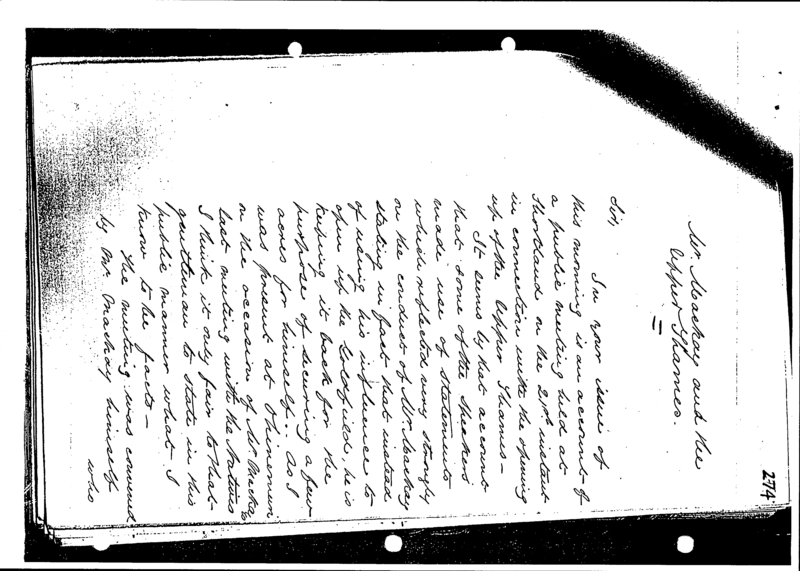 274
Mr. Mackay and the
Upper Thames.
Sir,
In your issue of
this morning is an account of
a public meeting held at
Shortland on the 21st instant
in connection with the opening
up of the Upper Thames –
It seems by that account
that some of the speakers
made use of statements
which reflected very strongly
on the conduct of Mr. Mackay
stating in fact that instead
of using his influence to
open up the Goldfields, he is
keeping it back for the
purpose of securing a few
acres for himself. As I
was present at Ohinemuri
on the occasion of Mr.
last meeting with the Natives
I think it only fair to that
gentleman to state in this
public manner what I
know to be facts –
The meeting was convened
by Mr. Mackay himself
who